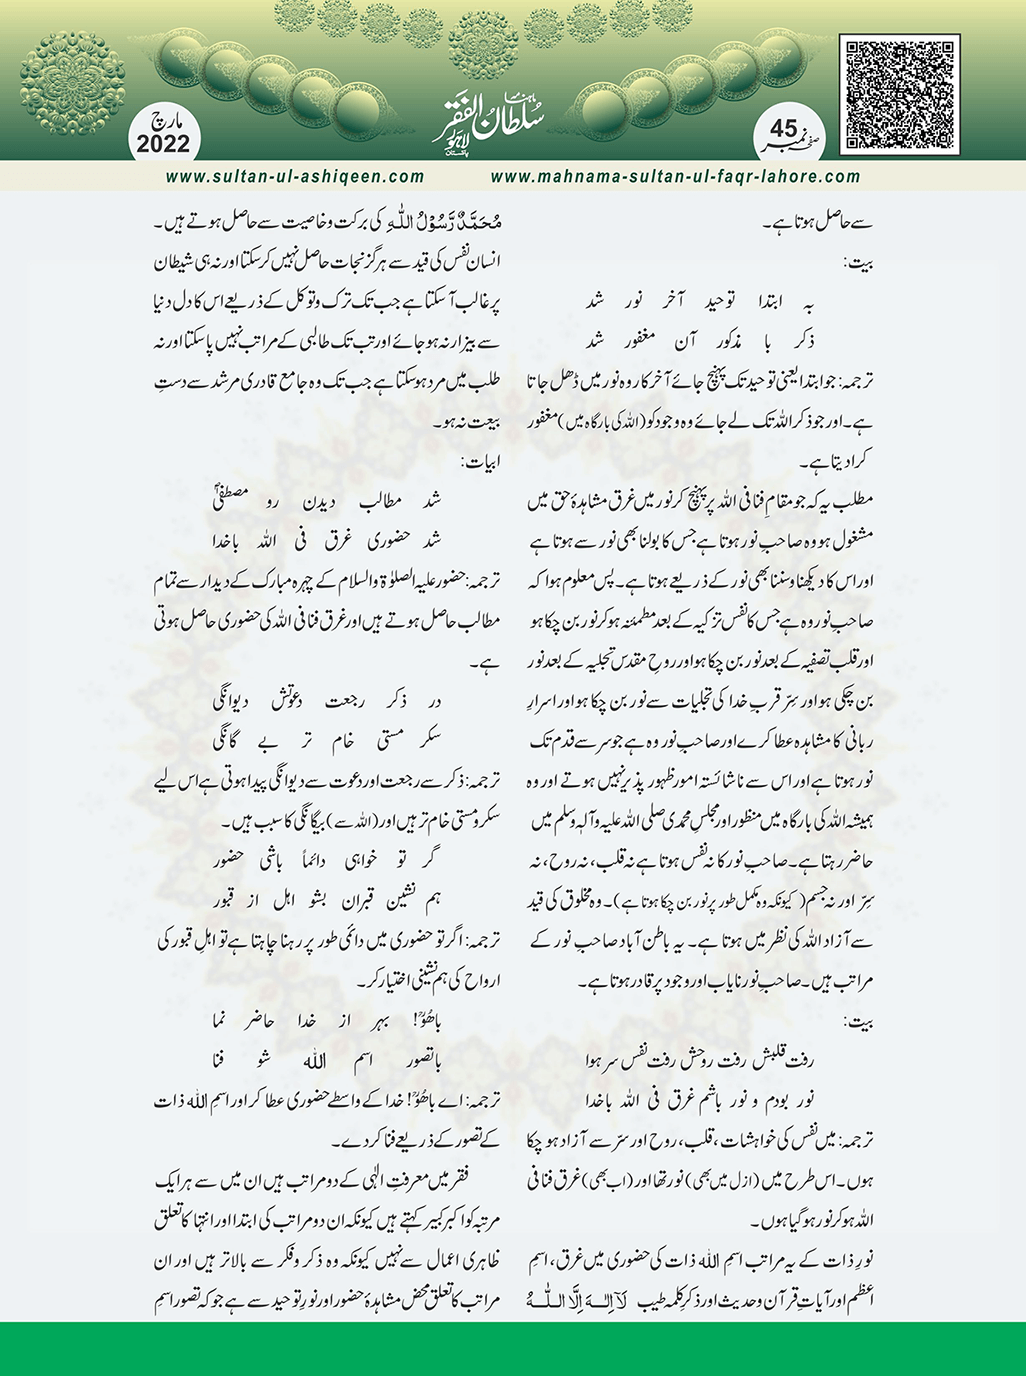 مارچ
2022
ماہنامہ
سلطان الفقر
لاہور
پاکستان
45
صفحہ نمبر
www.sultan-ul-ashiqeen.com
www.mahnama-sultan-ul-faqr-lahore.com
سے حاصل ہوتا ہے۔
بیت:
بہ ابتدا توحید آخر نور شد
ذکر با مذکور آن مغفور شد
ترجمہ: جو ابتدا یعنی توحید تک پہنچ جائے آخرکار وہ نور میں ڈھل جاتا
ہے۔ اور جو ذکر اللہ تک لے جائے وہ وجود کو (اللہ کی بارگاہ میں) مغفور
کرا دیتا ہے۔
مطلب یہ کہ جو مقامِ فنا فی اللہ پر پہنچ کر نور میں غرق مشاہدۂ حق میں
مشغول ہو وہ صاحبِ نور ہوتا ہے جس کا بولنا بھی نور سے ہوتا ہے
اور اس کا دیکھنا و سننا بھی نور کے ذریعے ہوتا ہے۔ پس معلوم ہوا کہ
صاحبِ نور وہ ہے جس کا نفس تزکیہ کے بعد مطمئنہ ہو کر نور بن چکا ہو
اور قلب تصفیہ کے بعد نور بن چکا ہو اور روحِ مقدس تجلیہ کے بعد نور
بن چکی ہو اور سِرّ قربِ خدا کی تجلیات سے نور بن چکا ہو اور اسرارِ
ربانی کا مشاہدہ عطا کرے اور صاحبِ نور وہ ہے جو سر سے قدم تک
نور ہوتا ہے اور اس سے ناشائستہ امور ظہور پذیر نہیں ہوتے اور وہ
ہمیشہ اللہ کی بارگاہ میں منظور اور مجلسِ محمدی صلی اللہ علیہ وآلہٖ وسلم میں
حاضر رہتا ہے۔ صاحبِ نور کا نہ نفس ہوتا ہے نہ قلب، نہ روح، نہ
سِرّ اور نہ جسم (کیونکہ وہ مکمل طور پر نور بن چکا ہوتا ہے)۔ وہ مخلوق کی قید
سے آزاد اللہ کی نظر میں ہوتا ہے۔ یہ باطن آباد صاحبِ نور کے
مراتب ہیں۔ صاحبِ نور نایاب اور وجود پر قادر ہوتا ہے۔
بیت:
رفت قلبش رفت روحش رفت نفس سر ہوا
نور بودم و نور باشم غرق فی اللہ باخدا
ترجمہ: میں نفس کی خواہشات، قلب، روح اور سِرّ سے آزاد ہو چکا
ہوں۔ اس طرح میں (ازل میں بھی) نور تھا اور (اب بھی) غرق فنا فی
اللہ ہو کر نور ہو گیا ہوں۔
نورِ ذات کے یہ مراتب اسمِ اللہ ذات کی حضوری میں غرق، اسمِ
اعظم اور آیاتِ قرآن و حدیث اور ذکرِ کلمہ طیب لَآ اِلٰہَ اِلَّا اللّٰہُ
مُحَمَّدٌ رَّسُوْلُ اللّٰہِ کی برکت و خاصیت سے حاصل ہوتے ہیں۔
انسان نفس کی قید سے ہرگز نجات حاصل نہیں کر سکتا اور نہ ہی شیطان
پر غالب آ سکتا ہے جب تک ترک و توکل کے ذریعے اس کا دل دنیا
سے بیزار نہ ہو جائے اور تب تک طالبی کے مراتب نہیں پا سکتا اور نہ
طلب میں مرد ہو سکتا ہے جب تک وہ جامع قادری مرشد سے دستِ
بیعت نہ ہو۔
ابیات:
شد مطالب دیدن رو مصطفیؐ
شد حضوری غرق فی اللہ باخدا
ترجمہ: حضور علیہ الصلوٰۃ والسلام کے چہرہ مبارک کے دیدار سے تمام
مطالب حاصل ہوتے ہیں اور غرق فنا فی اللہ کی حضوری حاصل ہوتی
ہے۔
در ذکر رجعت دعوتش دیوانگی
سکر مستی خام تر بے گانگی
ترجمہ: ذکر سے رجعت اور دعوت سے دیوانگی پیدا ہوتی ہے اس لیے
سکر و مستی خام تر ہیں اور (اللہ سے) بیگانگی کا سبب ہیں۔
گر تو خواہی دائماً باشی حضور
ہم نشین قبران بشو اہل از قبور
ترجمہ: اگر تو حضوری میں دائمی طور پر رہنا چاہتا ہے تو اہلِ قبور کی
ارواح کی ہم نشینی اختیار کر۔
باھُوؒ! بہر از خدا حاضر نما
باتصور اسم اللہ شو فنا
ترجمہ: اے باھُوؒ! خدا کے واسطے حضوری عطا کر اور اسمِ اللہ ذات
کے تصور کے ذریعے فنا کر دے۔
فقر میں معرفتِ الٰہی کے دو مراتب ہیں ان میں سے ہر ایک
مرتبہ کو اکبر کبیر کہتے ہیں کیونکہ ان دو مراتب کی ابتدا اور انتہا کا تعلق
ظاہری اعمال سے نہیں کیونکہ وہ ذکر و فکر سے بالاتر ہیں اور ان
مراتب کا تعلق محض مشاہدۂ حضور اور نورِ توحید سے ہے جو کہ تصور اسمِ